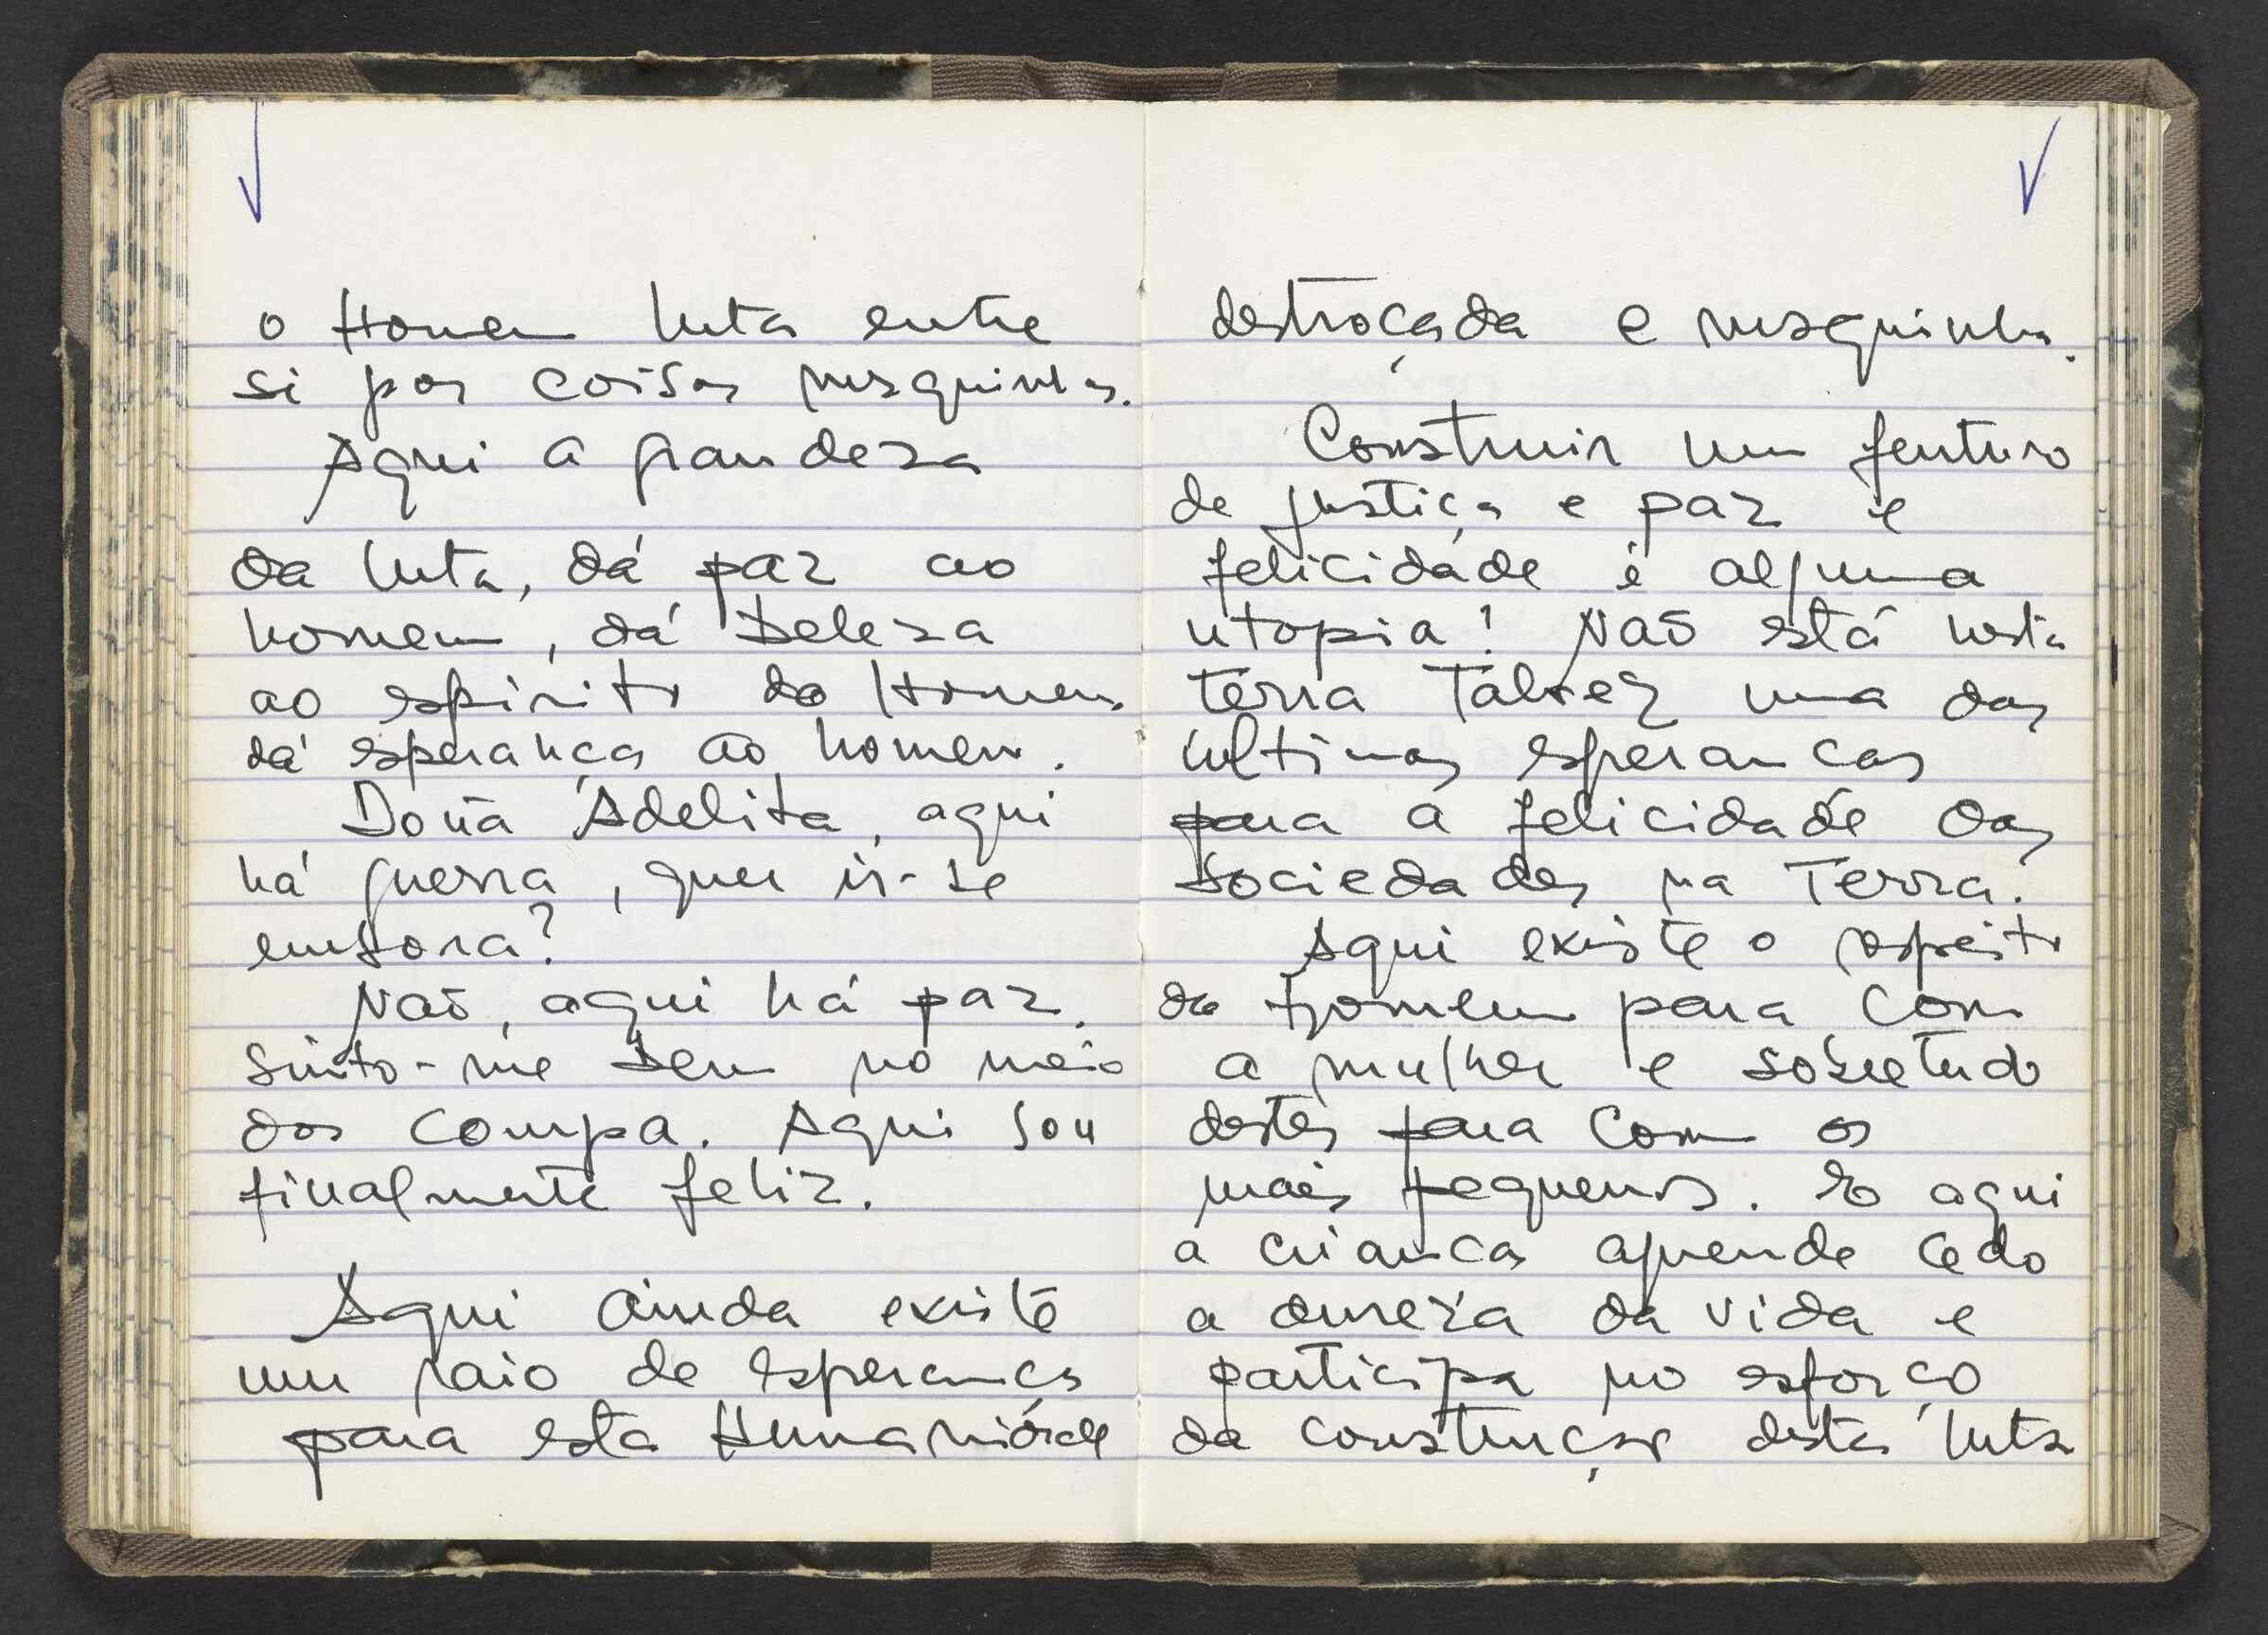 o Homem luta entre
si por coisas mesquinhas.
Aqui a grandeza
da luta, dá paz ao
homem, dá beleza
ao espirito do Homem
dá esperança ao homem.
Doña Adelita, aqui
há guerra, quer ir-se
embora?
Não, aqui há paz.
Sinto-me bem no meio
dos compa. Aqui sou
finalmente feliz.
Aqui ainda existe
um raio de esperança
para esta Humanidade
destroçada e mesquinha.
Construir um futuro
de justiça e paz e
felicidade é alguma
utopia! Não está nesta
terra talvez uma das
ultimas esperancas
para a felicidade das
sociedades na Terra.
Aqui existe o respeito
do homem para com
a mulher e sobretudo
destes para com os
mais pequenos. E aqui
a crianca aprende cedo
a dureza da vida e
participa no esforço
da construção desta luta